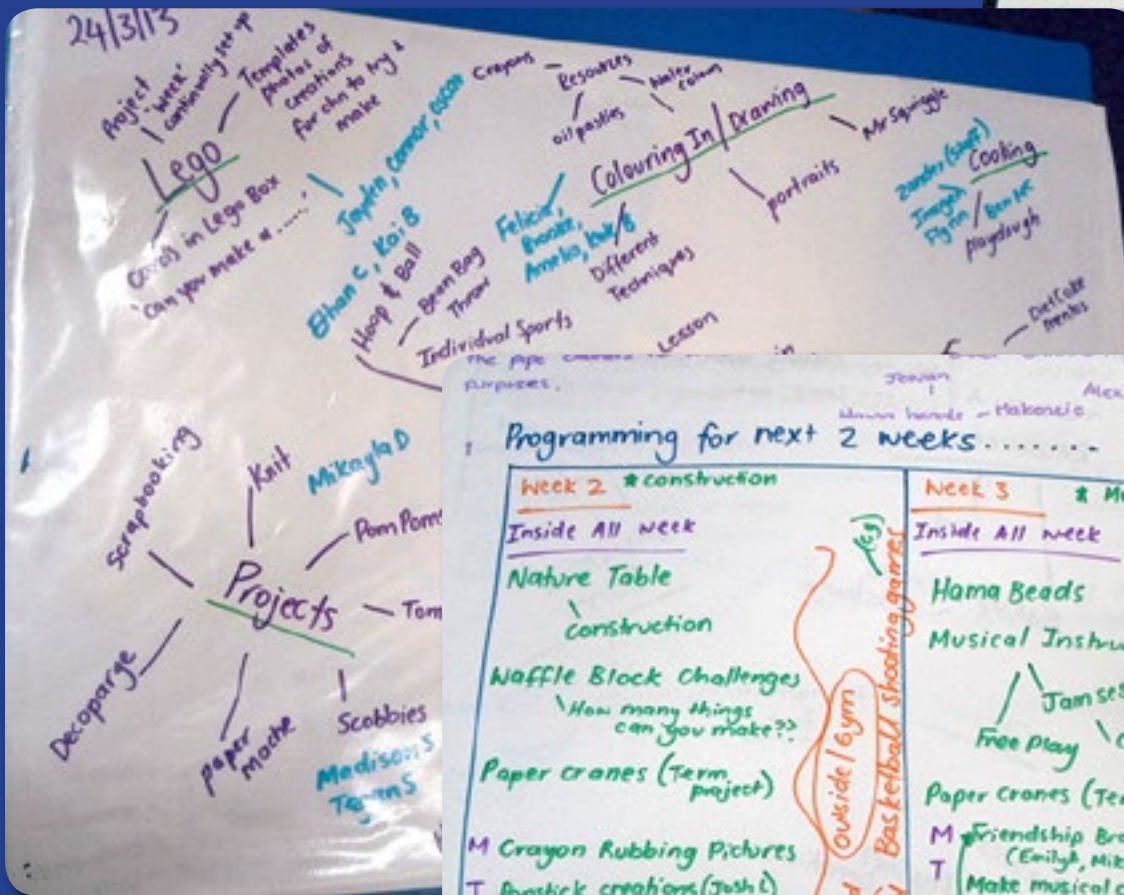 24/3/13
Project
'week'
continually set up
Templates
photos of
creations
for chn to try &
make
Lego
Cards in Lego Box
'Can you make a ......'
Jayden, Connor, oscar
Ethan C, Kai B
Crayons
Resources
Water
colours
oil pastles
Colouring In / Drawing
Mr Squiggle
portraits
Different
Techniques
Felicia,
Brooke,
Amelia,
Zander (Staff)
Cooking
Imogen
Flynn
playdough
Hoop & Ball
Bean Bag
Throw
Individual Sports
Lesson
in
Diet Coke
mentos
Scrapbooking
Knit
Mikayla D
Pom Poms
Projects
Tom
Decoparge
paper
mache
Scobbies
Madison S
Tegan S
The pipe
purposes.
Alex
hands - Makenzie
Programming for next 2 weeks.......
Week 2 * construction
Inside All week
Nature Table
construction
Waffle Block Challenges
How many things
can you make??
Paper cranes (Term
project)
M Crayon Rubbing Pictures
T Popstick creations (Josh L)
Outside / Gym
(eg)
Basketball shooting games
Week 3 * Mu
Inside All week
Hama Beads
Musical Instru
Jam ses
Free play
Paper cranes (Ter
M Friendship Bra
T
(Emily R, Mik
Make musical c